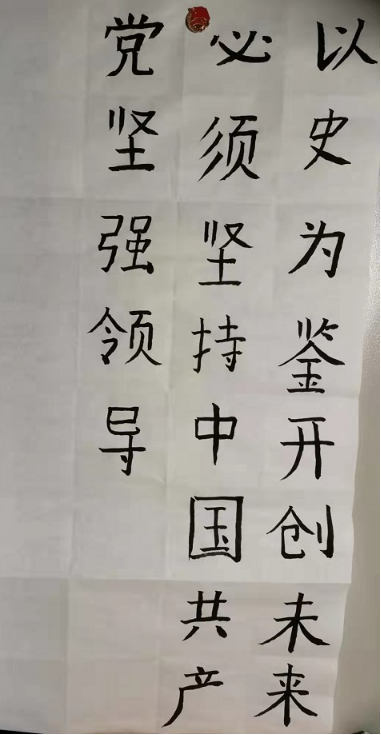 以史为鉴开创未来
必须坚持中国共产
党坚强领导